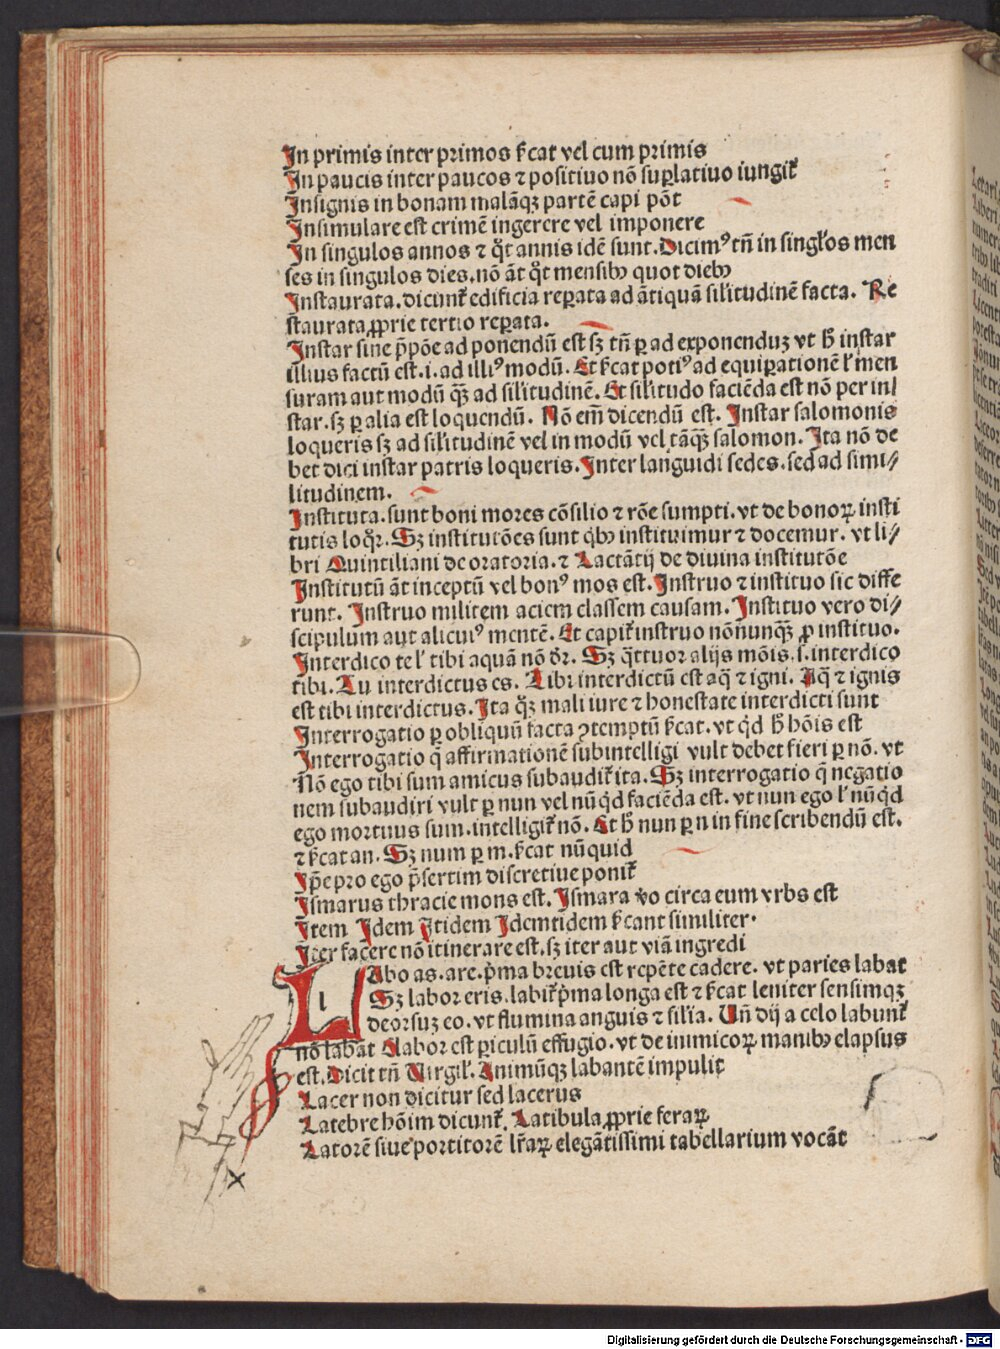 In primis inter primos ſ̄cat vel cum primis
In paucis inter paucos ⁊ positiuo nō suꝑlatiuo iungit᷑
Insignis in bonam malāqꝫ partē capi pōt
Insimulare est crimē ingerere vel imponere
In singulos annos ⁊ qͦt annis idē sunt. Dicimꝰ tn̄ in singl̓os men
ses in singulos dies. nō āt qͦt mensibꝫ quot diebꝫ
Instaurata. dicunt᷑ edificia reꝑata ad ātiquā sil̓itudinē facta. Re
staurata ꝓprie tertio reꝑata.
Instar sine p̄pōe ad ponendū est sꝫ tn̄ ꝑ ad exponenduꝫ vt h̄ instar
illius factū est. i. ad illiꝰ modū. Et ſ̄cat potiꝰ ad equiꝑationē l̓ men
suram aut modū qͣꝫ ad sil̓itudinē. Et sil̓itudo faciēda est nō per in
star. sꝫ ꝑ alia est loquendū. Nō em̄ dicendū est. Instar salomonis
loqueris sꝫ ad sil̓itudinē vel in modū vel tāqͣꝫ salomon. Ita nō de
bet dici instar patris loqueris. Inter languidi sedes. sed ad simi⸗
litudinem.
Instituta. sunt boni mores cōsilio ⁊ rōe sumpti. vt de bonoꝝ insti
tutis loqͥr. Sꝫ institutōes sunt qͥbꝫ instituimur ⁊ docemur. vt li⸗
bri Quintiliani de oratoria. ⁊ Lactātij de diuina institutōe
Institutū āt inceptū vel bonꝰ mos est. Instruo ⁊ instituo sic diffe
runt. Instruo militem aciem classem causam. Instituo vero di⸗
scipulum aut alicuiꝰ mentē. Et capit᷑ instruo nōnunqͣꝫ ꝓ instituo.
Interdico te l̓ tibi aquā nō dr̄. Sꝫ qͣttuor alijs mōis. s. interdico
tibi. Tu interdictus es. Tibi interdictū est aqͣ ⁊ igni. Aqͣ ⁊ ignis
est tibi interdictus. Ita qͣꝫ mali iure ⁊ honestate interdicti sunt
Interrogatio ꝑ obliquū facta ꝯtemptū ſ̄cat. vt qͥd h̄ hōis est
Interrogatio q̄ affirmationē subintelligi vult debet fieri ꝑ nō. vt
Nō ego tibi sum amicus subaudit᷑ ita. Sꝫ interrogatio q̄ negatio
nem subaudiri vult ꝑ nun vel nūqͥd faciēda est. vt nun ego l̓ nūqͥd
ego mortuus sum. intelligit᷑ nō. Et h̄ nun ꝑ n in fine scribendū est.
⁊ ſ̄cat an. Sꝫ num ꝑ m. ſ̄cat nūquid
Ip̄e pro ego p̄sertim discretiue ponit᷑
Ismarus thracie mons est. Ismara v̓o circa eum vrbs est
Item Idem Itidem Idemtidem ſ̄cant similiter.
Iter facere nō itinerare est. sꝫ iter aut viā ingredi
LAbo as. are. p̄ma breuis est repēte cadere. vt paries labat
Sꝫ labor eris. labit᷑ p̄ma longa est ⁊ ſ̄cat leniter sensimqꝫ
deorsuꝫ eo. vt flumina anguis ⁊ sil̓ia. Vn̄ dij a celo labunt᷑
nō labāt Elabor est ꝑiculū effugio. vt de inimicoꝝ manibꝫ elapsus
est. Dicit tn̄ Virgil̓. Animūqꝫ labantē impulit
Lacer non dicitur sed lacerus
Latebre hōim dicunt᷑. Latibula ꝓprie feraꝝ
Latorē siue portitorē lr̄aꝝ elegātissimi tabellarium vocāt
Digitalisierung gefördert durch die Deutsche Forschungsgemeinschaft - DFG